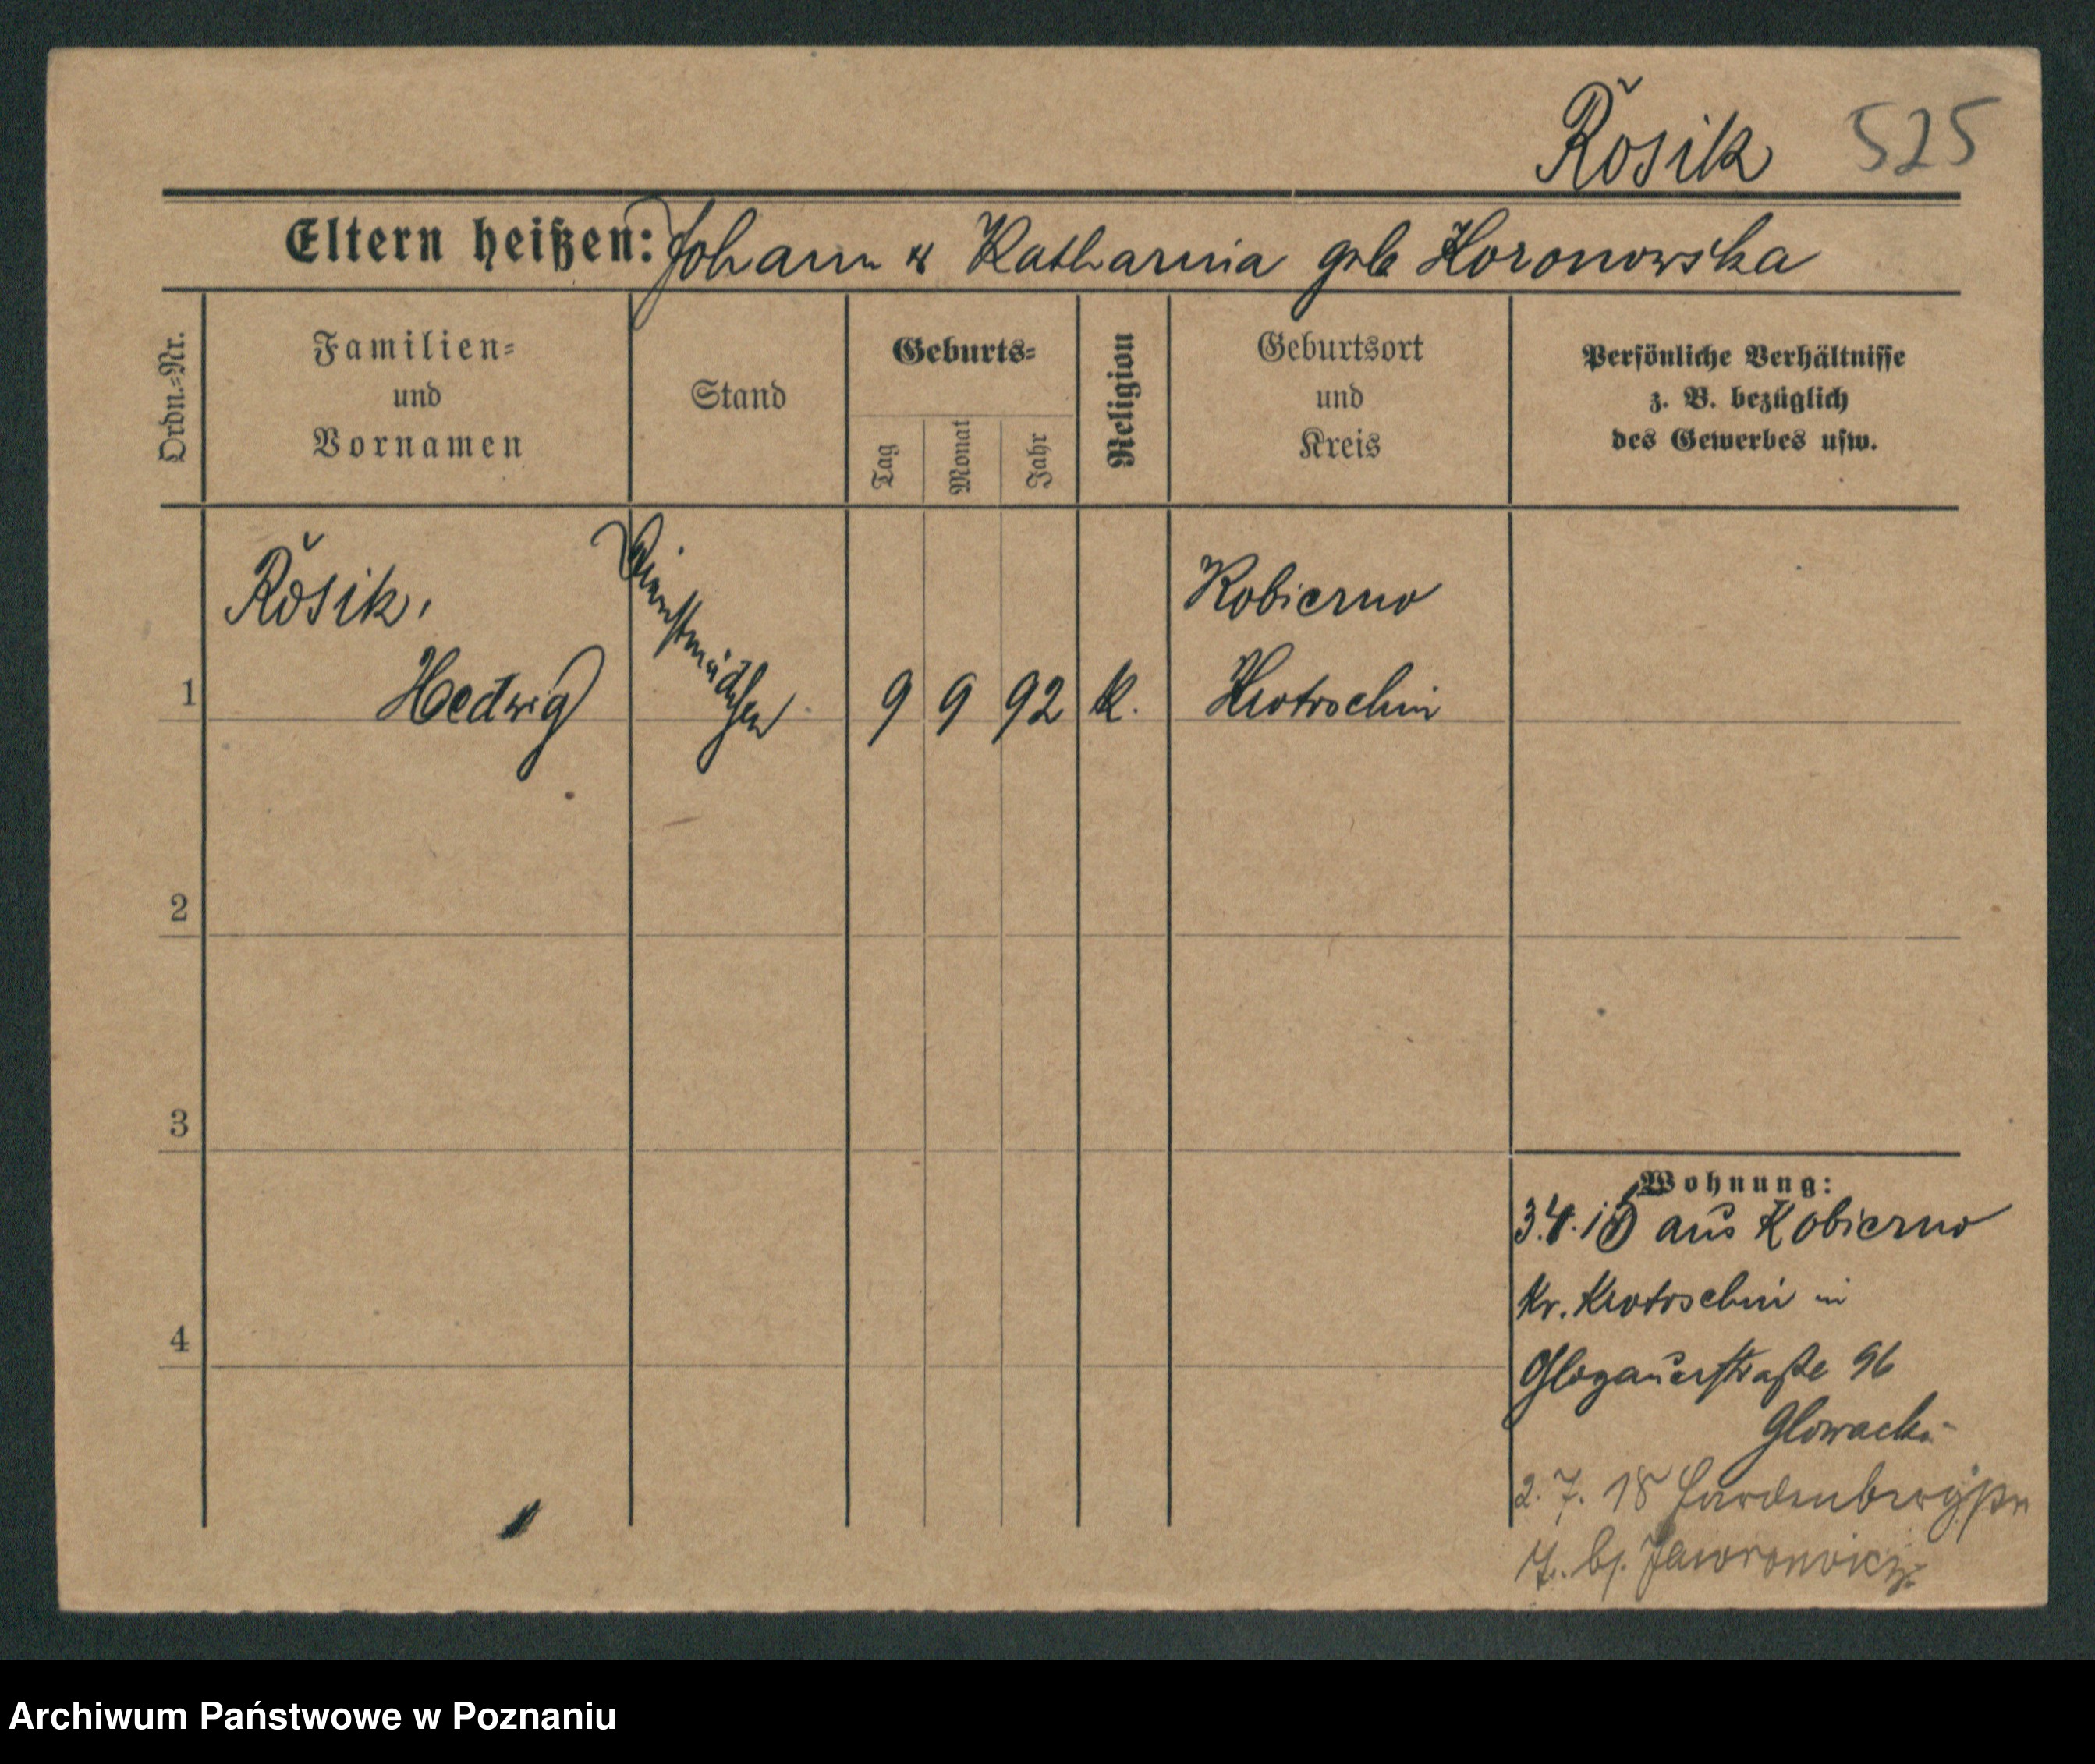 Rŏsik 525
Eltern heißen: Johann & Katharina geb Koronowska
Ordn.=Nr.
Familien=
und
Vornamen
Stand
Geburts=
Tag
Monat
Jahr
Religion
Geburtsort
und
Kreis
Persönliche Verhältnisse
z. B. bezüglich
des Gewerbes usw.
Rŏsik,
Hedwig
Dienstmädchen
1
9 9 92 k.
Kobierno
Krotoschin
2
3
4
Wohnung:
3.4.18 aus Kobierno
Kr. Krotoschin in
Glogauerstraße 96
Glowacki
2. 7. 18
Archiwum Państwowe w Poznaniu